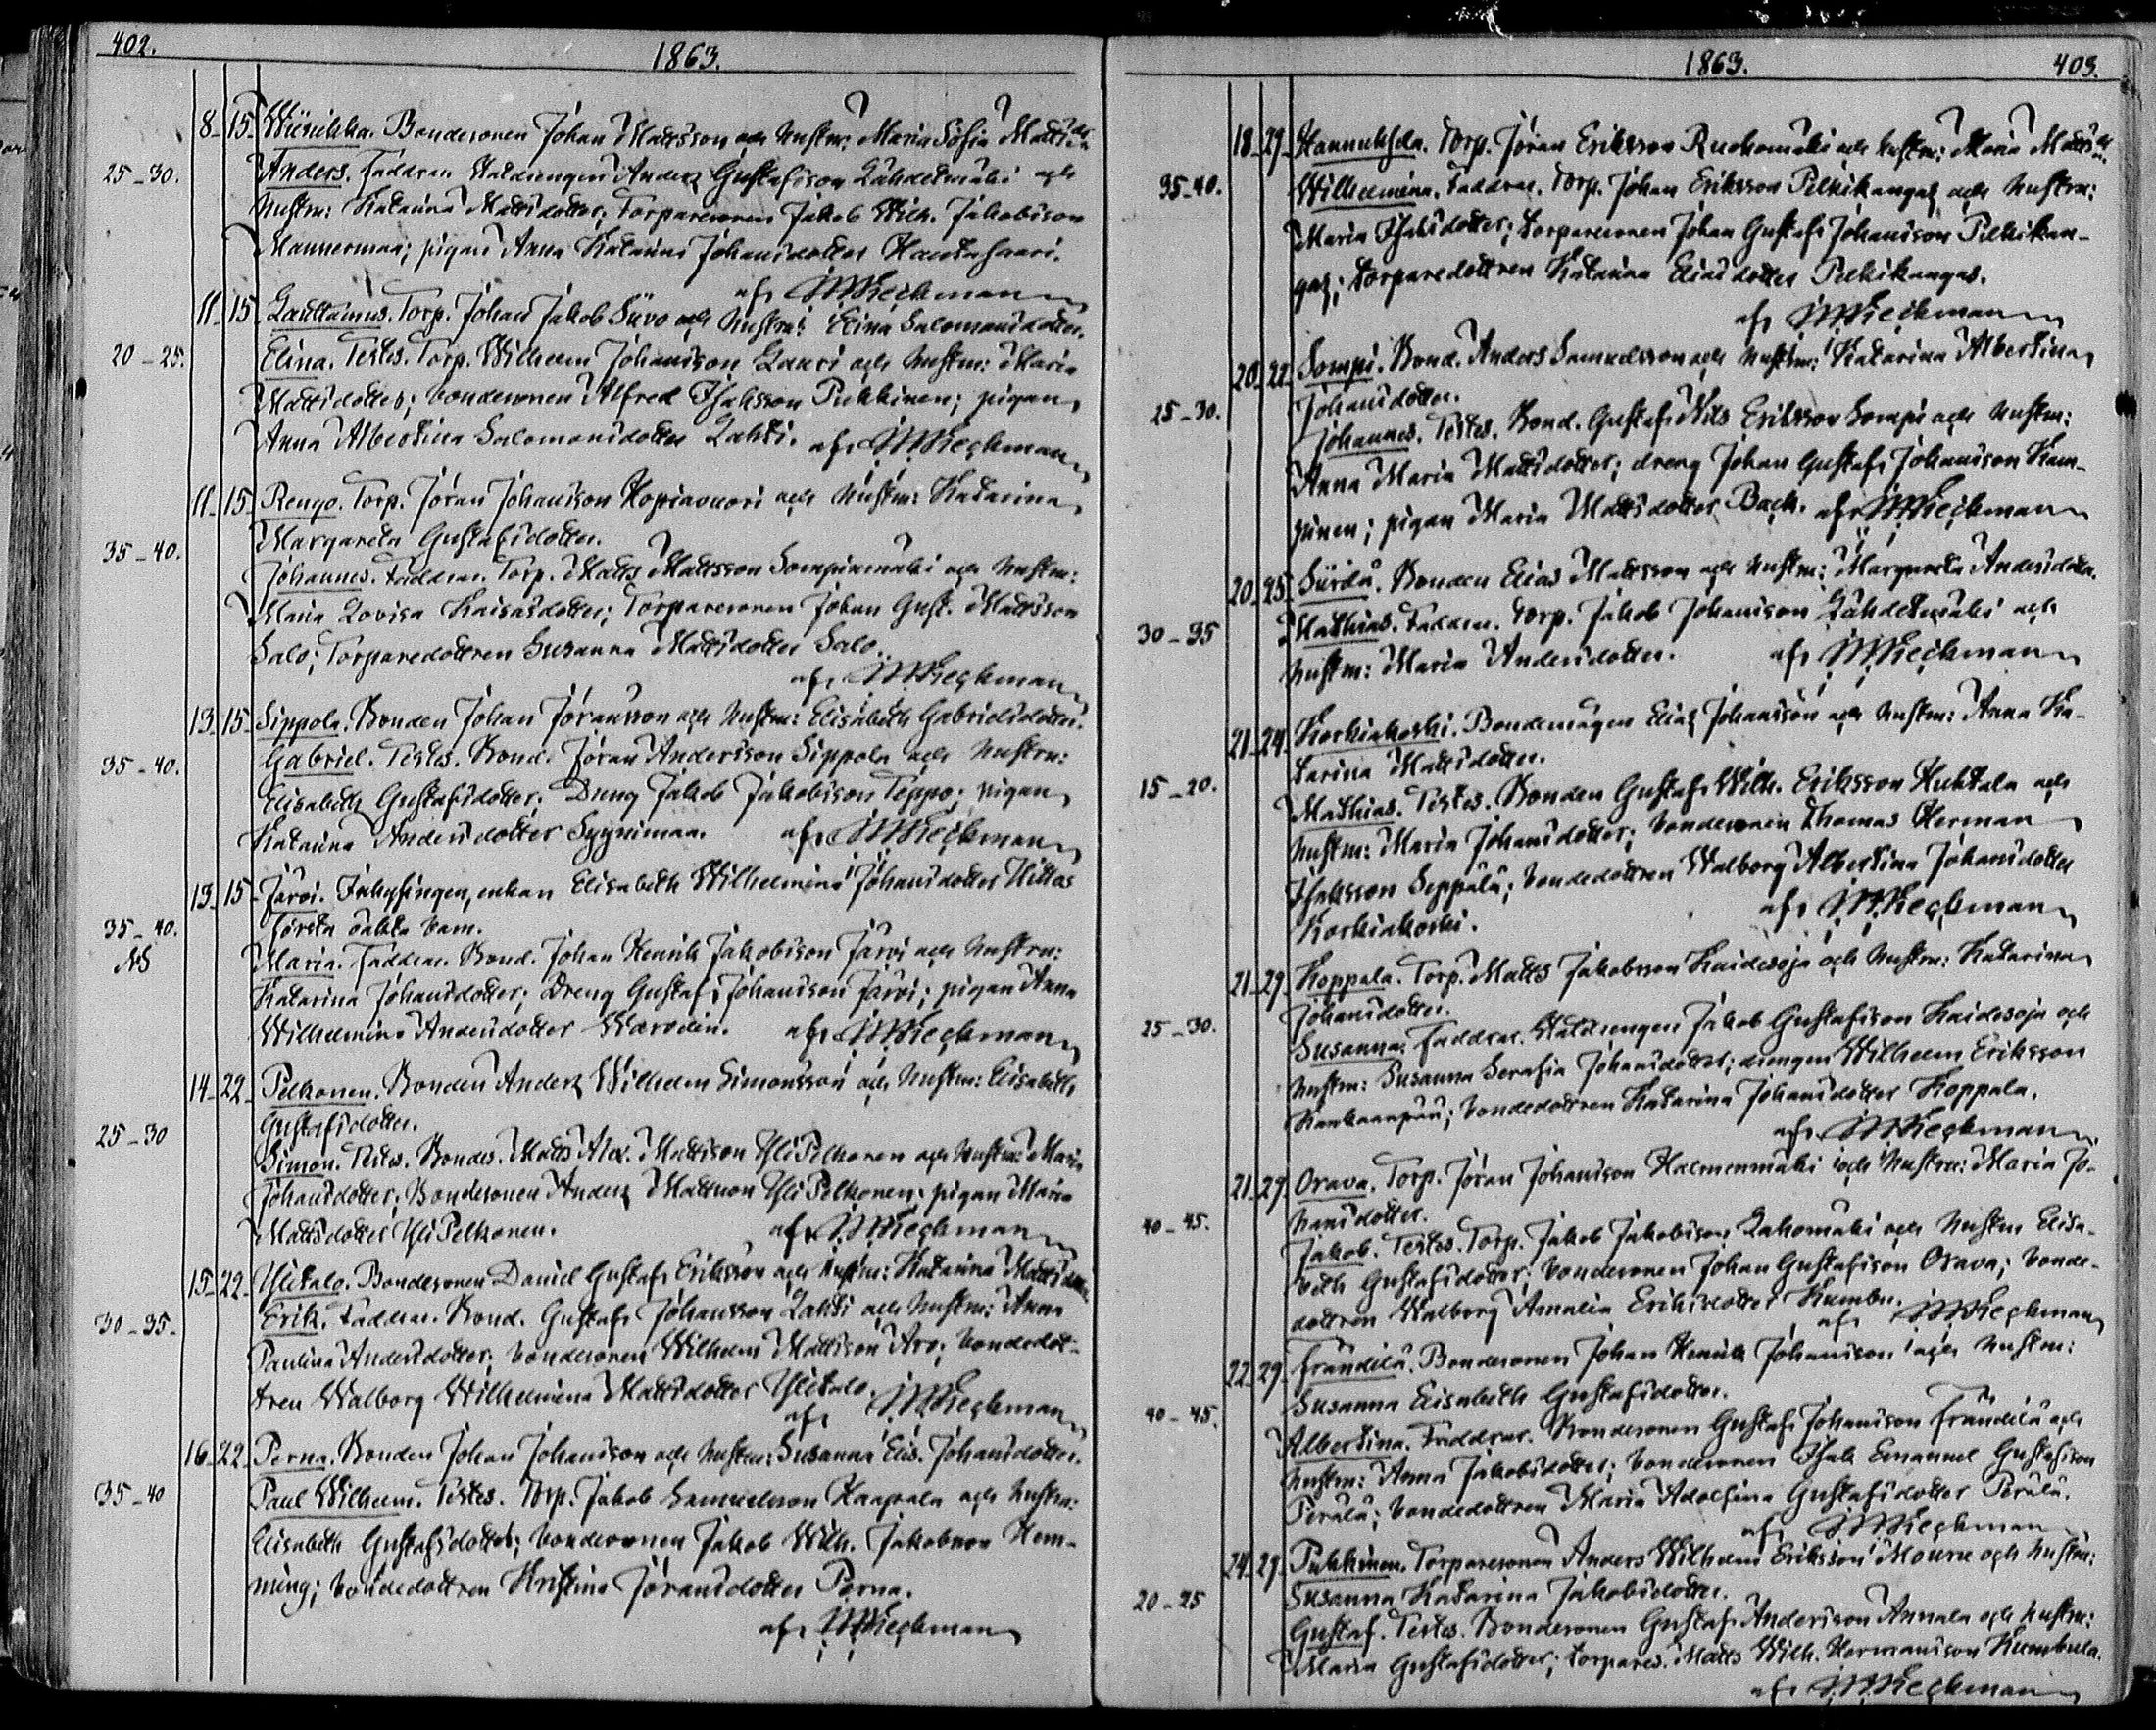 402.
1863.
8 15 Wiisikka. Bondesonen Johan Mattsson och hustru: Maria Sofia Mattsdr.
25-30. Anders. Faddrar. Anders Gustafsson Lähdetmäki och
hustru: Katarina Mattsdotter; Torparesonen Jakob Wilh. Jakobsson
Mannermaa; pigan Anna Katarina Johansdotter Hautasaari.
af
11 15 Laullamus. Torp. Johan Jakob Sivo och hustru: Elina Salomonsdotter.
20-25. Elina. Testes. Torp. Wilhelm Johansson Lauri och hustru: Maria
Mattsdotter; bondesonen Alfred Isaksson Pukkinen; pigan
Anna Albertina Salomonsdotter Lahti. af
11 15 Rengo. Torp. Jöran Johansson Kopiavuori och hustru: Katarina
Margareta Gustafsdotter.
35-40. Johannes. Faddrar. Torp. Matts Mattsson Sompinmäki och hustru:
Maria Lovisa Kaisasdotter; Torparesonen Johan Gust. Mattsson
Salo; Torparedottren Susanna Mattsdotter Salo.
af
13 15 Sippola. Bonden Johan Jöransson och hustru: Elisabeth Gabrielsdotter.
35-40. Gabriel. Testes. Bond. Jöran Andersson Sippola och hustru:
Elisabeth Gustafsdotter; Dreng Jakob Jakobsson Teppo; pigan
Katarina Andersdotter Syynimaa. af
13 15 Järvi. Inhysingen, enkan Elisabeth Wilhelmina Johansdotter Hillos
första oäkta barn.
35-40. Maria. Faddrar. Bond. Johan Henrik Jakobsson Järvi och hustru:
Katarina Johansdotter; Dreng Gustaf Johansson Järvi; pigan Anna
Wilhelmina Andersdotter af
14 22 Pelkonen. Bonden Anders Wilhelm Simonsson och hustru: Elisabeth
Gustafsdotter.
25-30 Simon. Testes. Bondes. Matts Alex. Mattsson Yli Pelkonen och hustru: Maria
Johansdotter; Bondesonen Anders Mattsson Yli Pelkonen; pigan Maria
Mattsdotter Yli Pelkonen. af
15 22 Ylitalo. Bondesonen Daniel Gustaf Eriksson och hustru: Katarina
30-35. Erik. Faddrar. Bond. Gustaf Johansson Lahti och hustru: Anna
Paulina Andersdotter; bondesonen Wilhelm Mattsson Aro; bondedot-
tren Walborg Wilhelmina Mattsdotter Ylitalo.
af
16 22 Perna. Bonden Johan Johansson och hustru: Susanna Elis. Johansdotter.
35-40 Paul Wilhelm. Testes. Torp. Jakob Samuelsson Haapala och hustru:
Elisabeth Gustafsdotter; bondesonen Jakob Wilh. Jakobsson Hem-
ming; bondedottren Kristina Jöransdotter Perna.
af
1863.
403.
18 29 Hannuksela. Torp. Jöran Eriksson Ruohomäki och hustru: Maria
35-40. Wilhelmina. Faddrar. Torp. Johan Eriksson Pelkikangas och hustru:
Maria Isaksdotter; torparesonen Johan Gustaf Johansson Pelkikan-
gas; torparedottren Katarina Eliasdotter Pelkikangas.
af
20 22 Sompi. Bond. Anders Samuelsson och hustru: Katarina Albertina
Johansdotter.
25-30. Johannes. Testes. Bond. Gustaf Nils Eriksson Sompi och hustru:
Anna Maria Mattsdotter; dreng Johan Gustaf Johansson Kam-
pinen; pigan Maria Mattsdotter Back. af
20 25 Siirilä. Bonden Elias Mattsson och hustru: Margareta Andersdotter.
30-35 Mathias. Faddrar. Torp. Jakob Johansson Lähdetmäki och
hustru: Maria Andersdotter. af
21 24 Korkiakoski. Bondemågen Elias Johansson och hustru: Anna Ka-
tarina Mattsdotter.
15-20. Mathias. Testes. Bonden Gustaf Wilh. Eriksson Huhtala och
hustru: Maria Johansdotter; bondesonen Thomas Herman
Isaksson Seppälä; bondedottren Walborg Albertina Johansdotter
Korkiakoski. af
21 29 Koppala. Torp. Matts Jakobsson Kaidesoja och hustru: Katarina
Johansdotter.
25-30. Susanna. Faddrar. Jakob Gustafsson Kaidesoja och
hustru: Susanna Serafia Johansdotter; drengen Wilhelm Eriksson
Kankaanpää; bondedottren Katarina Johansdotter Koppala.
af
21 29 Orava. Torp. Jöran Johansson Halmenmäki och hustru: Maria Jo-
hansdotter.
40-45. Jakob. Testes. Torp. Jakob Jakobsson Lahomäki och hustru Elisa-
beth Gustafsdotter; bondesonen Johan Gustafsson Orava; bonde-
dottren Walborg Amalia Eriksdotter
af
22 29 Frändilä. Bondesonen Johan Henrik Johansson och hustru:
Susanna Elisabeth Gustafsdotter.
40-45. Albertina. Faddrar. Bondesonen Gustaf Johansson Frändilä och
hustru: Anna Jakobsdotter; bondesonen Isak Emanuel Gustafsson
Perälä; bondedottren Maria Adolfina Gustafsdotter Perälä.
af
24 29 Pukkinen. Torparesonen Anders Wilhelm Eriksson och hustru:
Susanna Katarina Jakobsdotter.
20-25 Gustaf. Testes. Bondesonen Gustaf Andersson Annala och hustru:
Maria Gustafsdotter; torpares. Matts Wilh. Hermansson
af